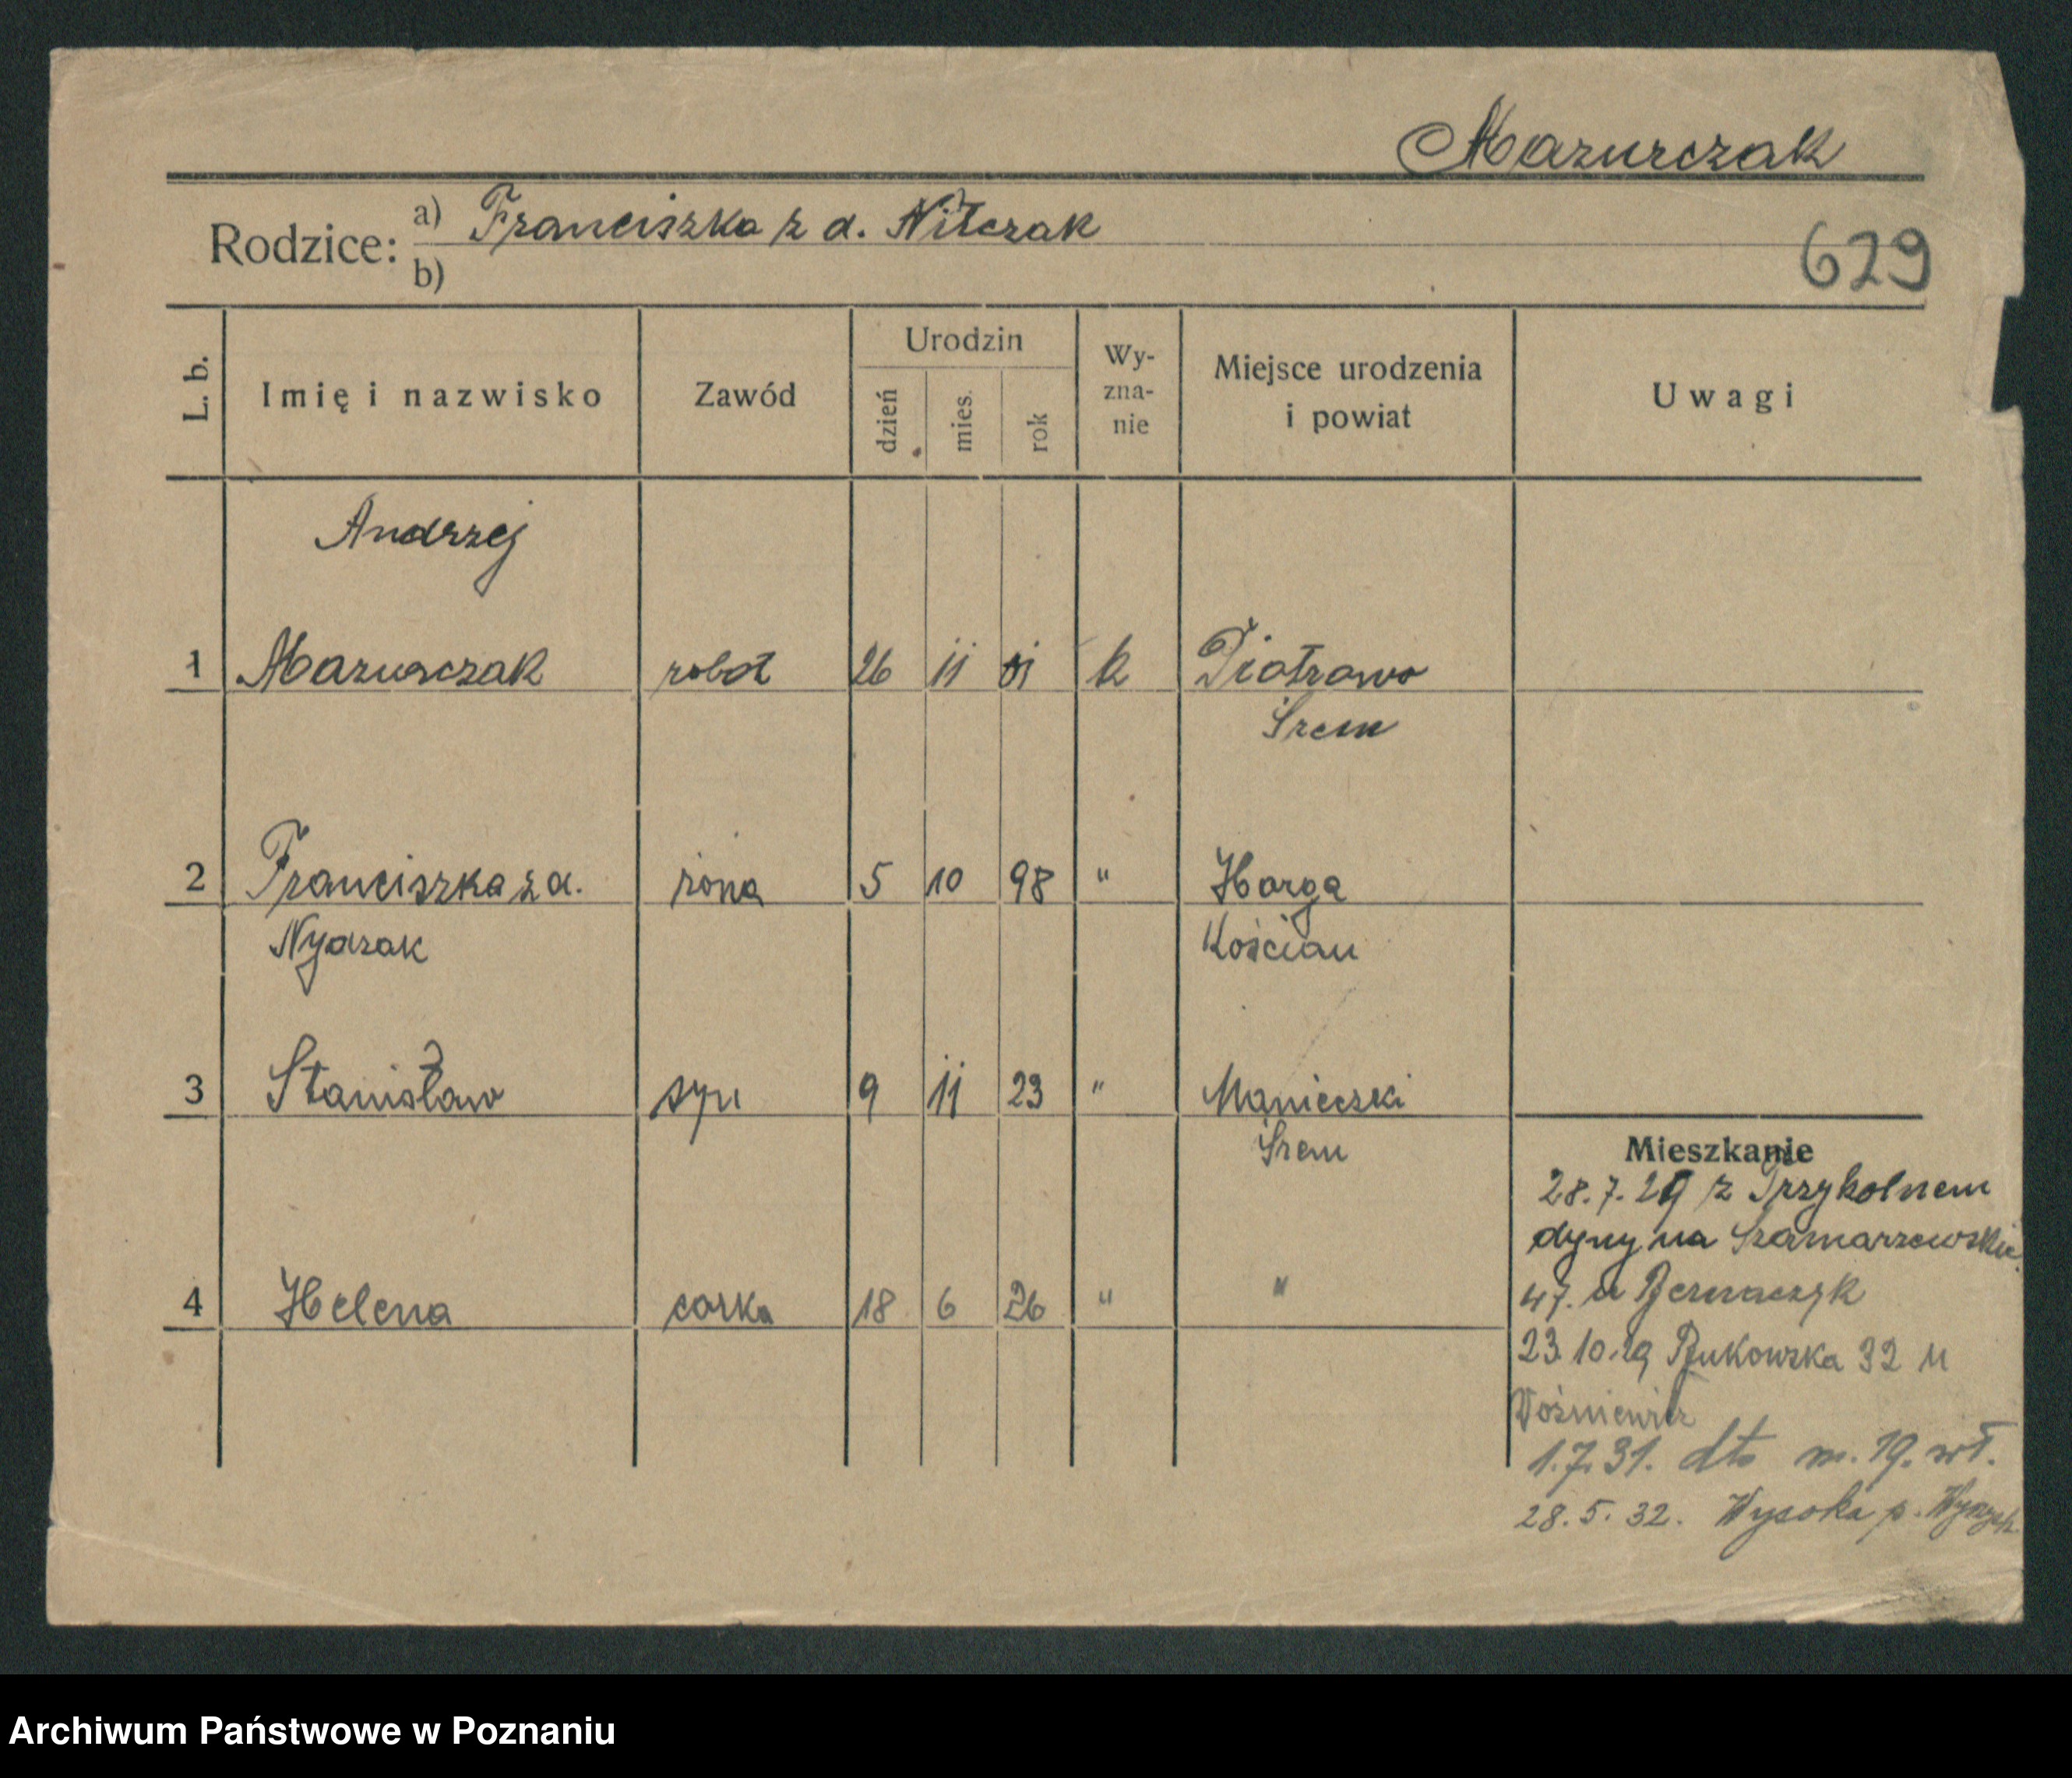 Mazurczak
Rodzice: a) Franciszka z d. Nitczak
b)
629
L. b.
Imię i nazwisko
Zawód
Urodzin
dzień
mies.
rok
Wy-
zna-
nie
Miejsce urodzenia
i powiat
Uwagi
Andrzej
1 Mazurczak robot 26 11 01 k Piotrowo
Śrem
2 Franciszka z d. żona 5 10 98 " Horga
Nyczak Kościan
3 Stanisław syn 9 11 23 " Manieczki
Śrem
4 Helena corka 18 6 26 " "
Mieszkanie
28.7.29 z Przykolnem
dyny na Szamarzewskie
47. u Bernaczyk
23.10.29 Bukowska 32 u
Woźniewicz
1.7.31. dto m. 19. wł.
28.5.32. Wysoka p.
Archiwum Państwowe w Poznaniu